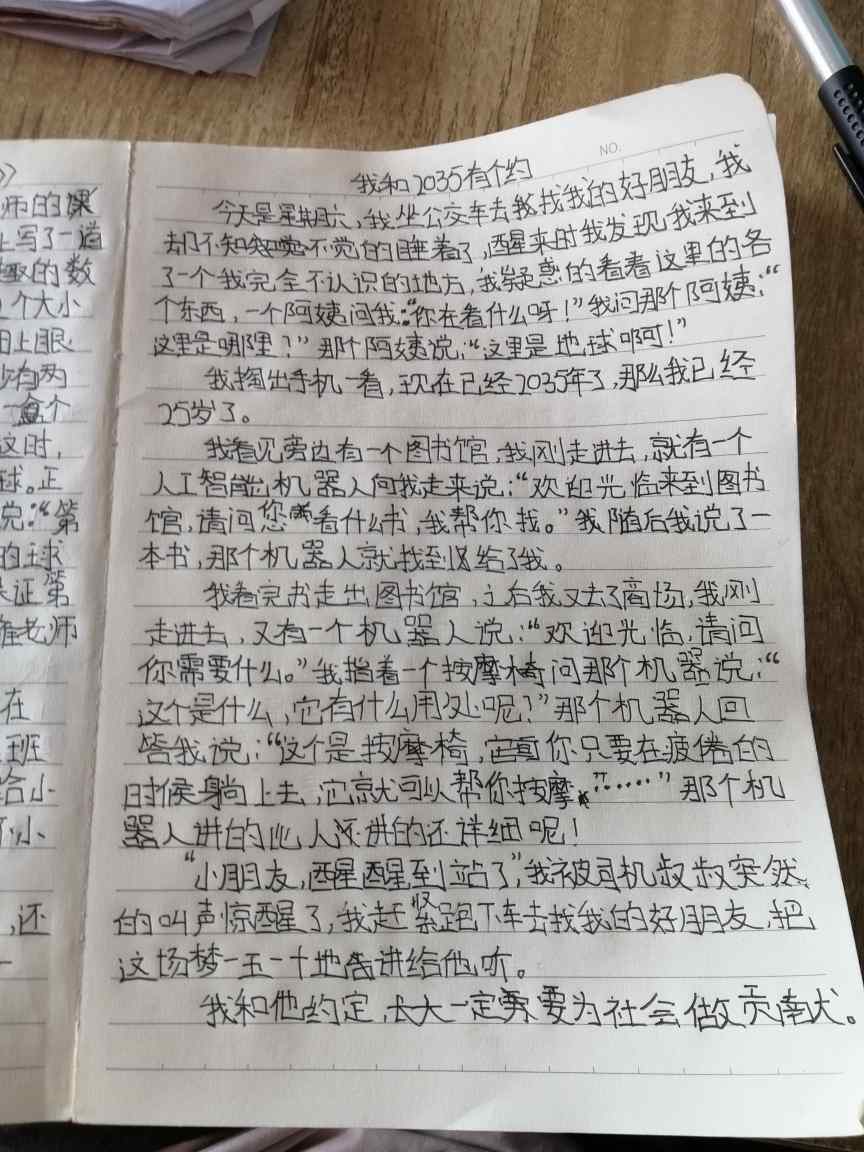 》
师的课
上写了一道
趣的数
个大小
闭上眼
少有两
一盒个
这时,
球。正
说:“第
的球
保证第
老师
在
班
给小
小
,还
一
NO.
我和2035有个约
今天是星期六,我坐公交车去找我的好朋友,我
却不知不觉的睡着了,醒来时我发现我来到
了一个我完全不认识的地方,我疑惑的看看这里的各
个东西,一个阿姨问我:“你在看什么呀!”我问那个阿姨:“
这里是哪里?”那个阿姨说:“这里是地球啊!”
我掏出手机一看,现在已经2035年了,那么我已经
25岁了。
我看见旁边有一个图书馆,我刚走进去,就有一个
人工智能机器人向我走来说:“欢迎光临来到图书
馆,请问您看什么书,我帮你找。”我随后我说了一
本书,那个机器人就找到以给了我。
我看完书走出图书馆,之后我又去了商场,我刚
走进去,又有一个机器人说:“欢迎光临,请问
你需要什么。”我指着一个按摩椅问那个机器说:“
这个是什么,它有什么用处呢?”那个机器人回
答我说:“这个是按摩椅,你只要在疲倦的
时候躺上去,它就可以帮你按摩”……”那个机
器人讲的比人还讲的还详细呢!
“小朋友,醒醒到站了”,我被司机叔叔突然
的叫声惊醒了,我赶紧跑下车去找我的好朋友,把
这场梦一五一十地告讲给他听。
我和他约定,长大一定要为社会做贡南犬。